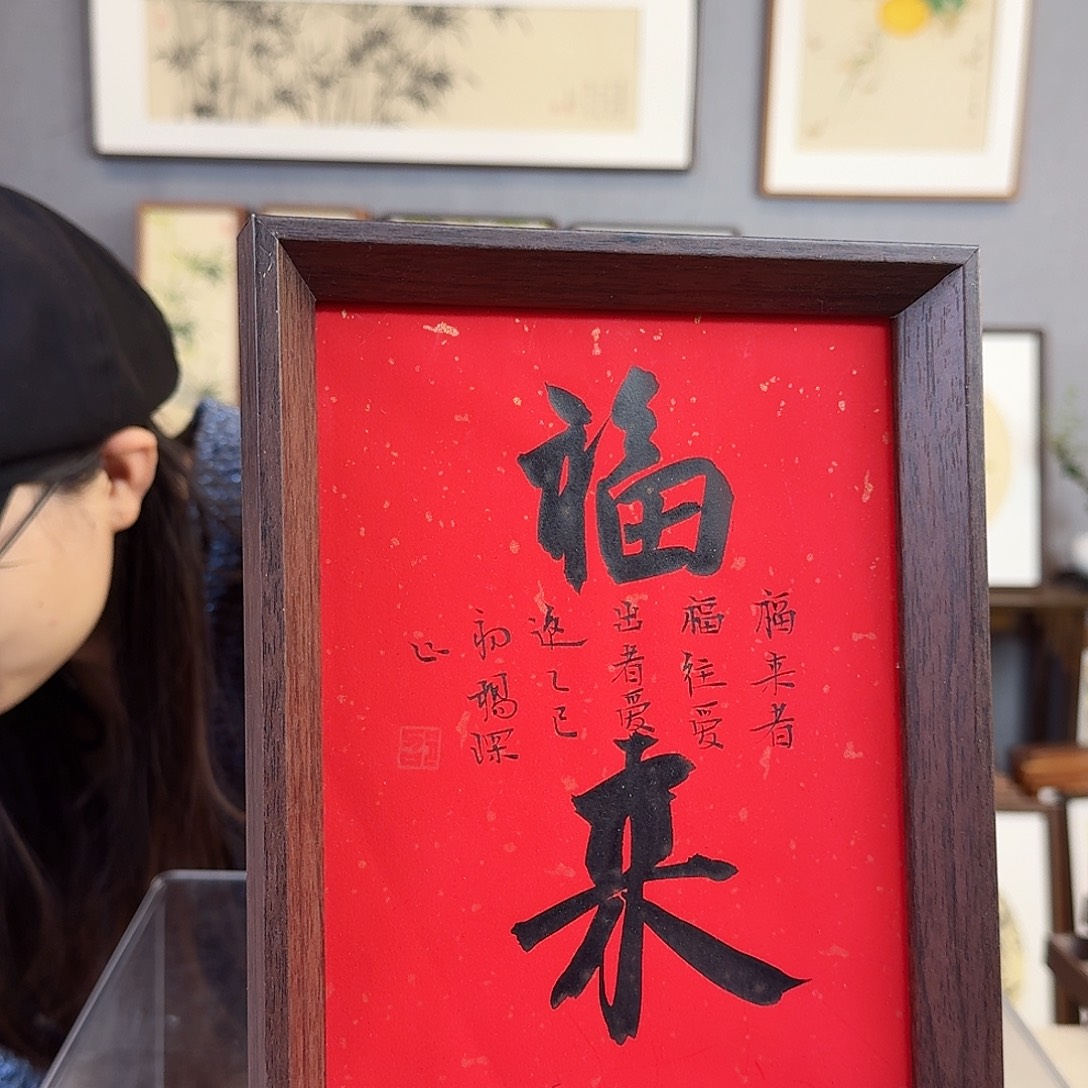 福来
福来者
福往爱
出者爱
返乙巳
初